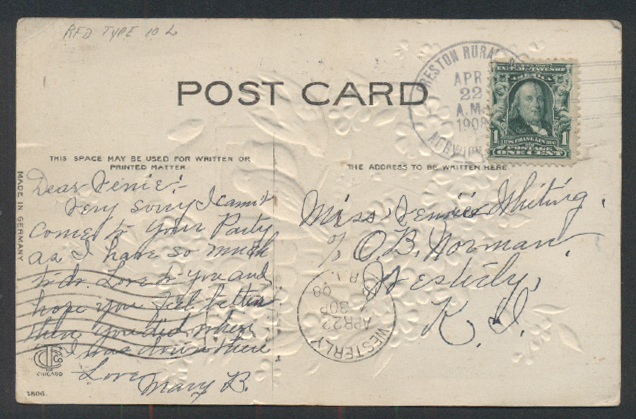 RFD TYPE 10 L
POST CARD
PRESTON RURAL
APR
22
A.M.
1909
1 BENJ. FRANKLIN 1
POSTAGE
ONE CENT
THIS SPACE MAY BE USED FOR WRITTEN OR
PRINTED MATTER
THE ADDRESS TO BE WRITTEN HERE
MADE IN GERMANY
Dear Venie:-
Very sorry I cannot
come to your Party
as I have so much
to do. Love to you and
hope you feel better
than you did when
I was down there
Love
Mary B.
Miss Vennie Whiting.
c/o O. B. Norman,
Westerly,
R. I.
WESTERLY
R.I.
APR 22
30P
09
CHICAGO
1806.